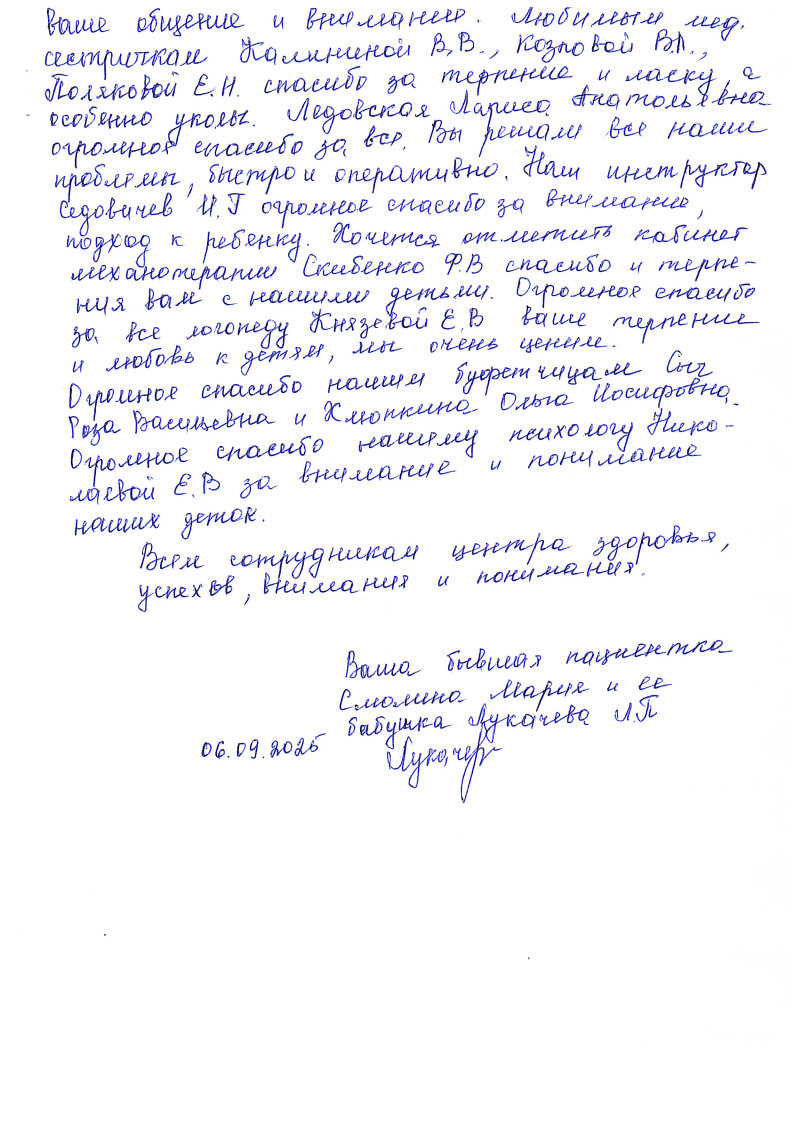 ваше общение и внимание. Любимым мед.
сестричкам Калининой В.В., Козловой В.А.,
Поляковой Е.Н. спасибо за терпение и ласку, а
особенно уколы. Ледовская Лариса Анатольевна
огромное спасибо за все. Вы решали все наши
проблемы, быстро и оперативно. Наш инструктор
Седовичев И.Г огромное спасибо за внимание,
подход к ребенку. Хочется отметить кабинет
механотерапии Скибенко Ф.В спасибо и терпе-
ния вам с нашими детьми. Огромное спасибо
за все логопеду Князевой Е.В ваше терпение
и любовь к детям, мы очень ценим.
Огромное спасибо нашим буфетчицам Сыч
Роза Васильевна и Хлюпкина Ольга Иосифовна.
Огромное спасибо нашему психологу Нико-
лаевой Е.В за внимание и понимание
наших деток.
Всем сотрудникам центра здоровья,
успехов, внимания и понимания.
Ваша бывшая пациентка
Смолина Мария и ее
бабушка Лукачева Л.П
06.09.2025 Лукачева